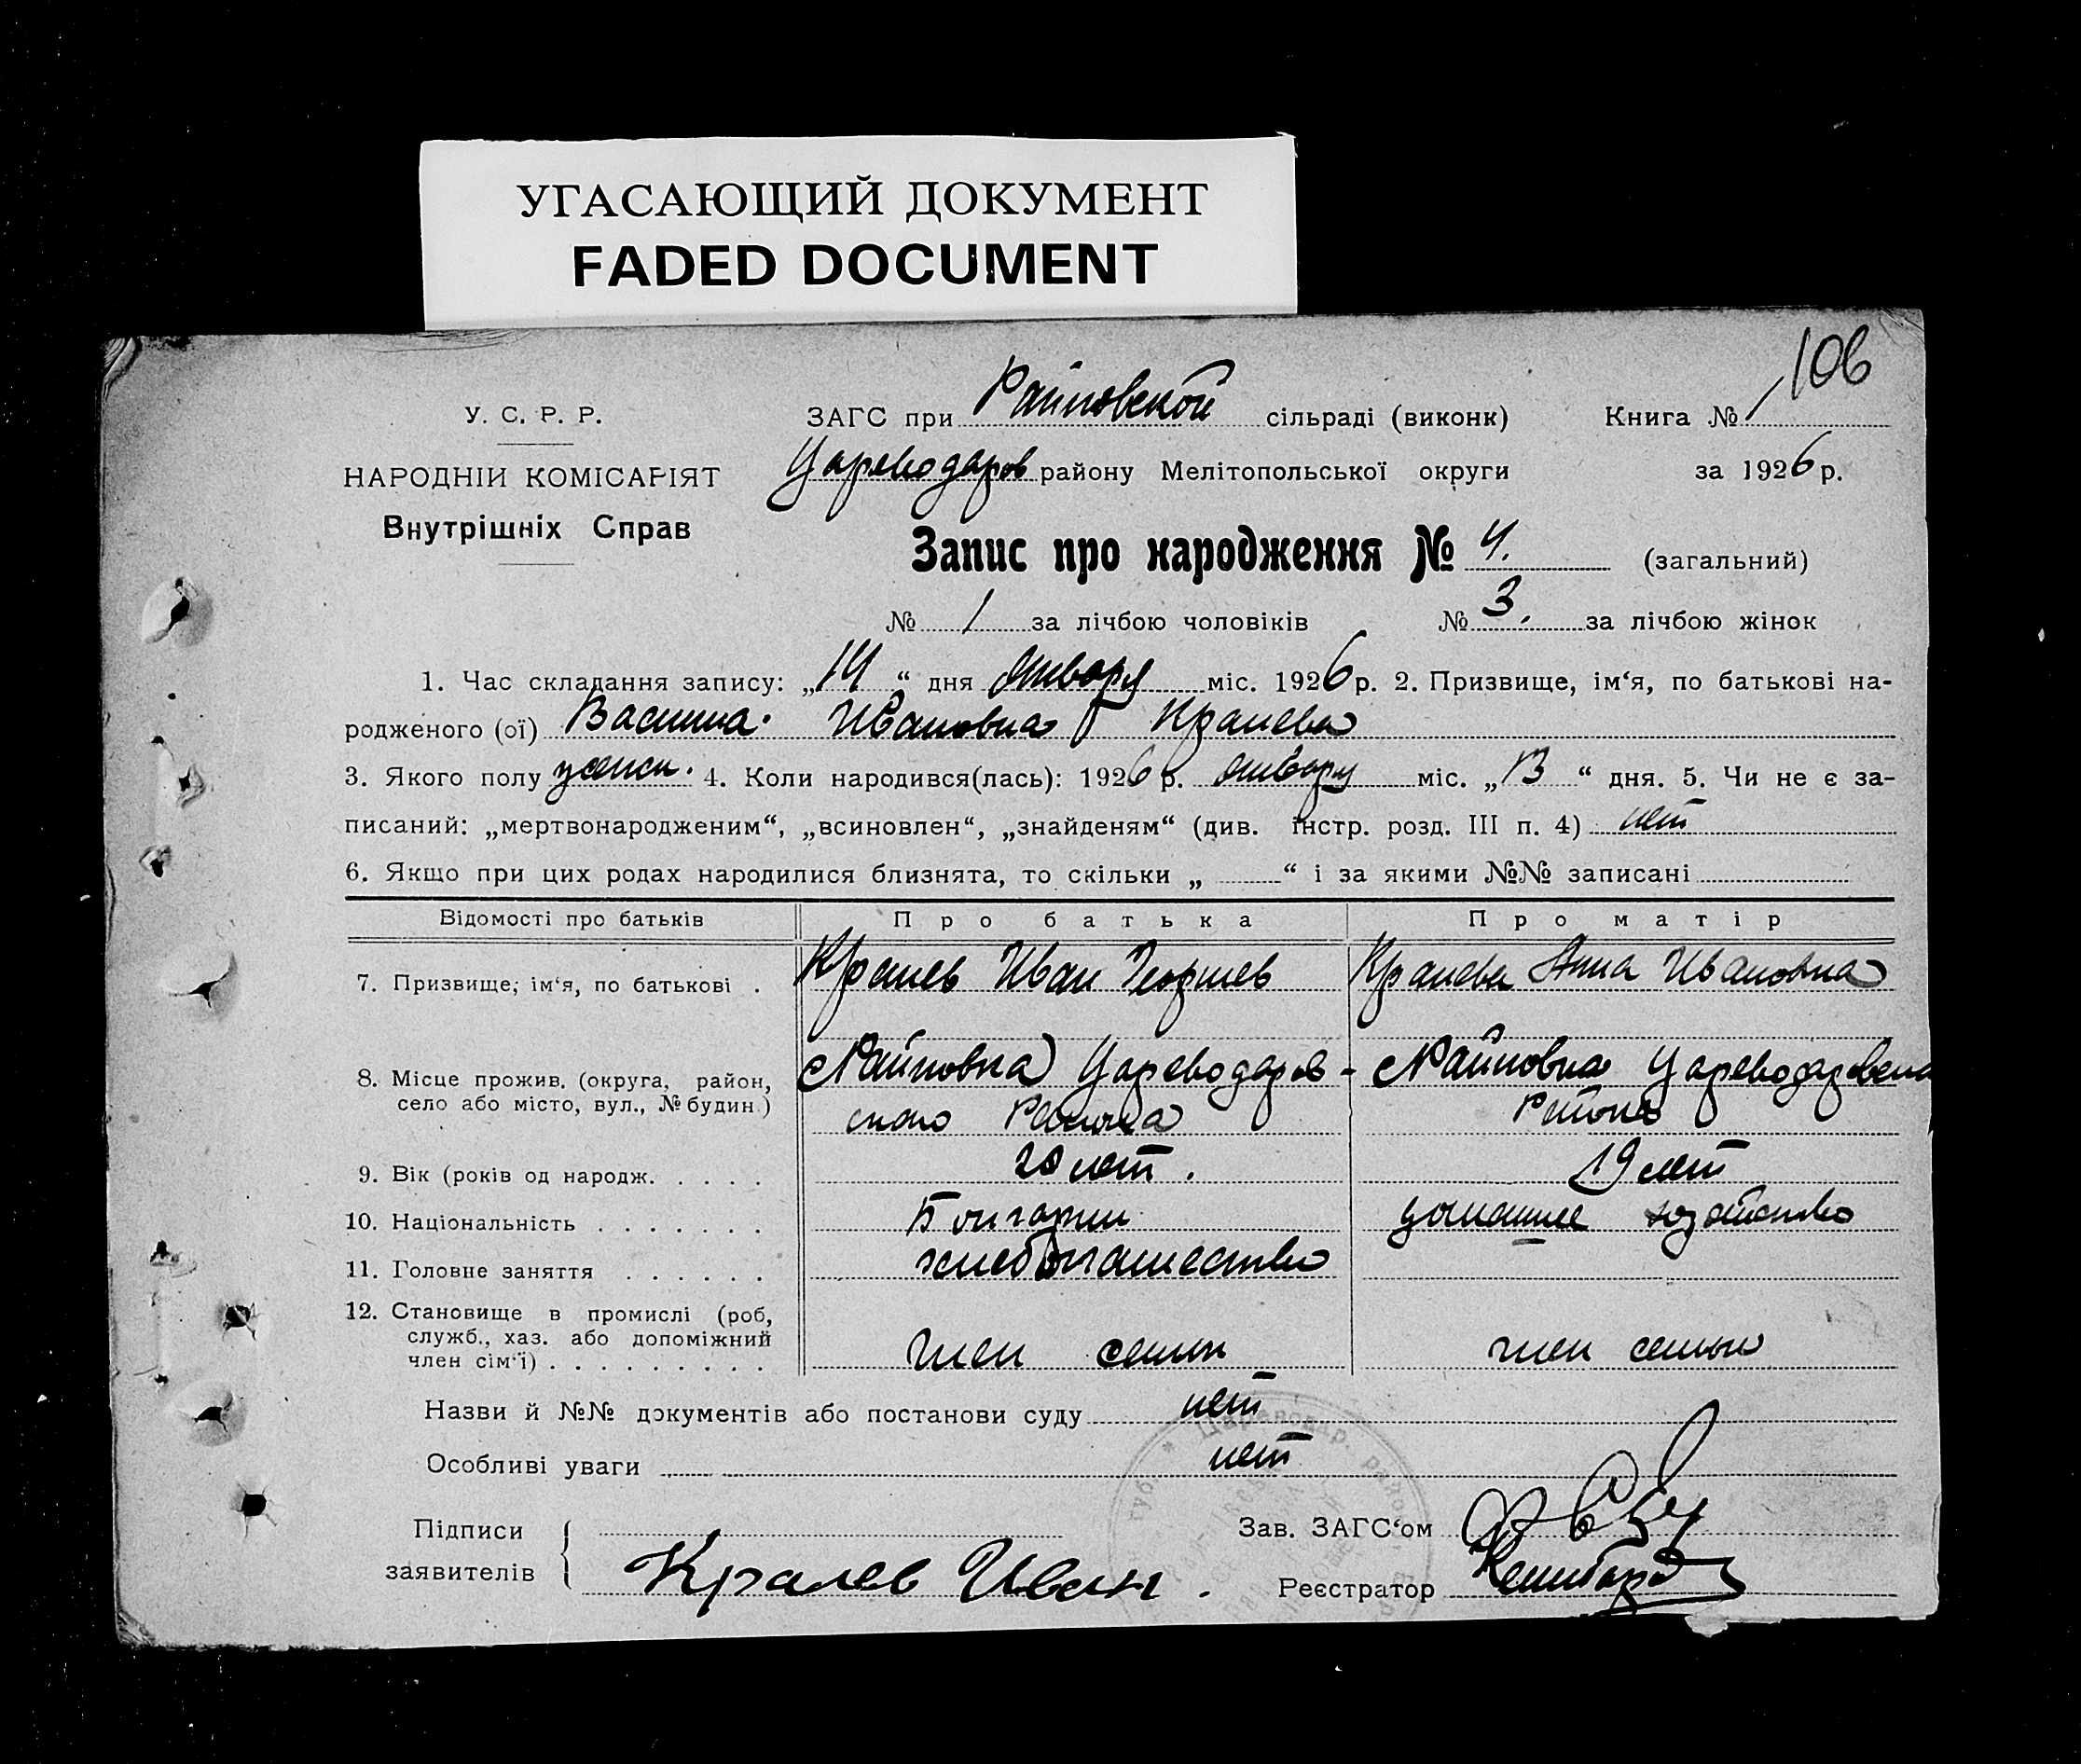 УГАСАЮЩИЙ ДОКУМЕНТ
FADED DOCUMENT
106
У. С. Р. Р.
ЗАГС при Райновской сільраді (виконк) Книга № 1
НАРОДНІЙ КОМІСАРІЯТ
Внутрішніх Справ
Цареводаров району Мелітопольської округи за 1926 р.
Запис про народження № 4. (загальний)
№ 1 за лічбою чоловіків № 3. за лічбою жінок
1. Час складання запису: „14“ дня январу міс. 1926 р. 2. Призвище, ім‘я, по батькові на-
родженого (ої) Васила. Ивановна Кралева
3. Якого полу женск. 4. Коли народився(лась): 1926 р. январу міс. „13“ дня. 5. Чи не є за-
писаний: „мертвонародженим“, „всиновлен“, „знайденям“ (див. інстр. розд. III п. 4) нет
6. Якщо при цих родах народилися близнята, то скільки „ “ і за якими №№ записані
Відомості про батьків Про батька Про матір
7. Призвище, ім‘я, по батькові . Кралев Иван Георгиев Кралева Анна Ивановна
8. Місце прожив. (округа, район, село або місто, вул., № будин.) с Райновка Цареводаров- с Райновка Цареводаровск
ского Района Района
9. Вік (років од народж. . . . . 20 лет. 19 лет
10. Національність . . . . . . . Болгарин домашнее хозяйство
11. Головне заняття . . . . . . хлебопашество
12. Становище в промислі (роб,
служб., хаз. або допоміжний
член сім‘ї) . . . . . . . . . член семьи член семьи
Назви й №№ документів або постанови суду нет
Особливі уваги нет
Підписи Зав. ЗАГС‘ом
заявителів Кралев Иван. Реєстратор